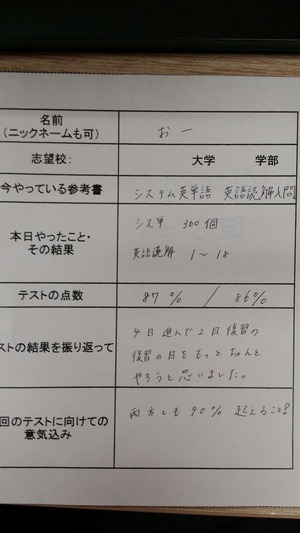 名前
(ニックネームも可)
おー
志望校:
大学 学部
今やっている参考書
システム英単語 英語読解入門
本日やったこと・
その結果
シス単 300個
英語読解 1～18
テストの点数
87% / 86%
ストの結果を振り返って
4日進んだ2日復習の
復習の日をもっとちゃんと
やろうと思いました。
回のテストに向けての
意気込み
両方とも90%超えること!